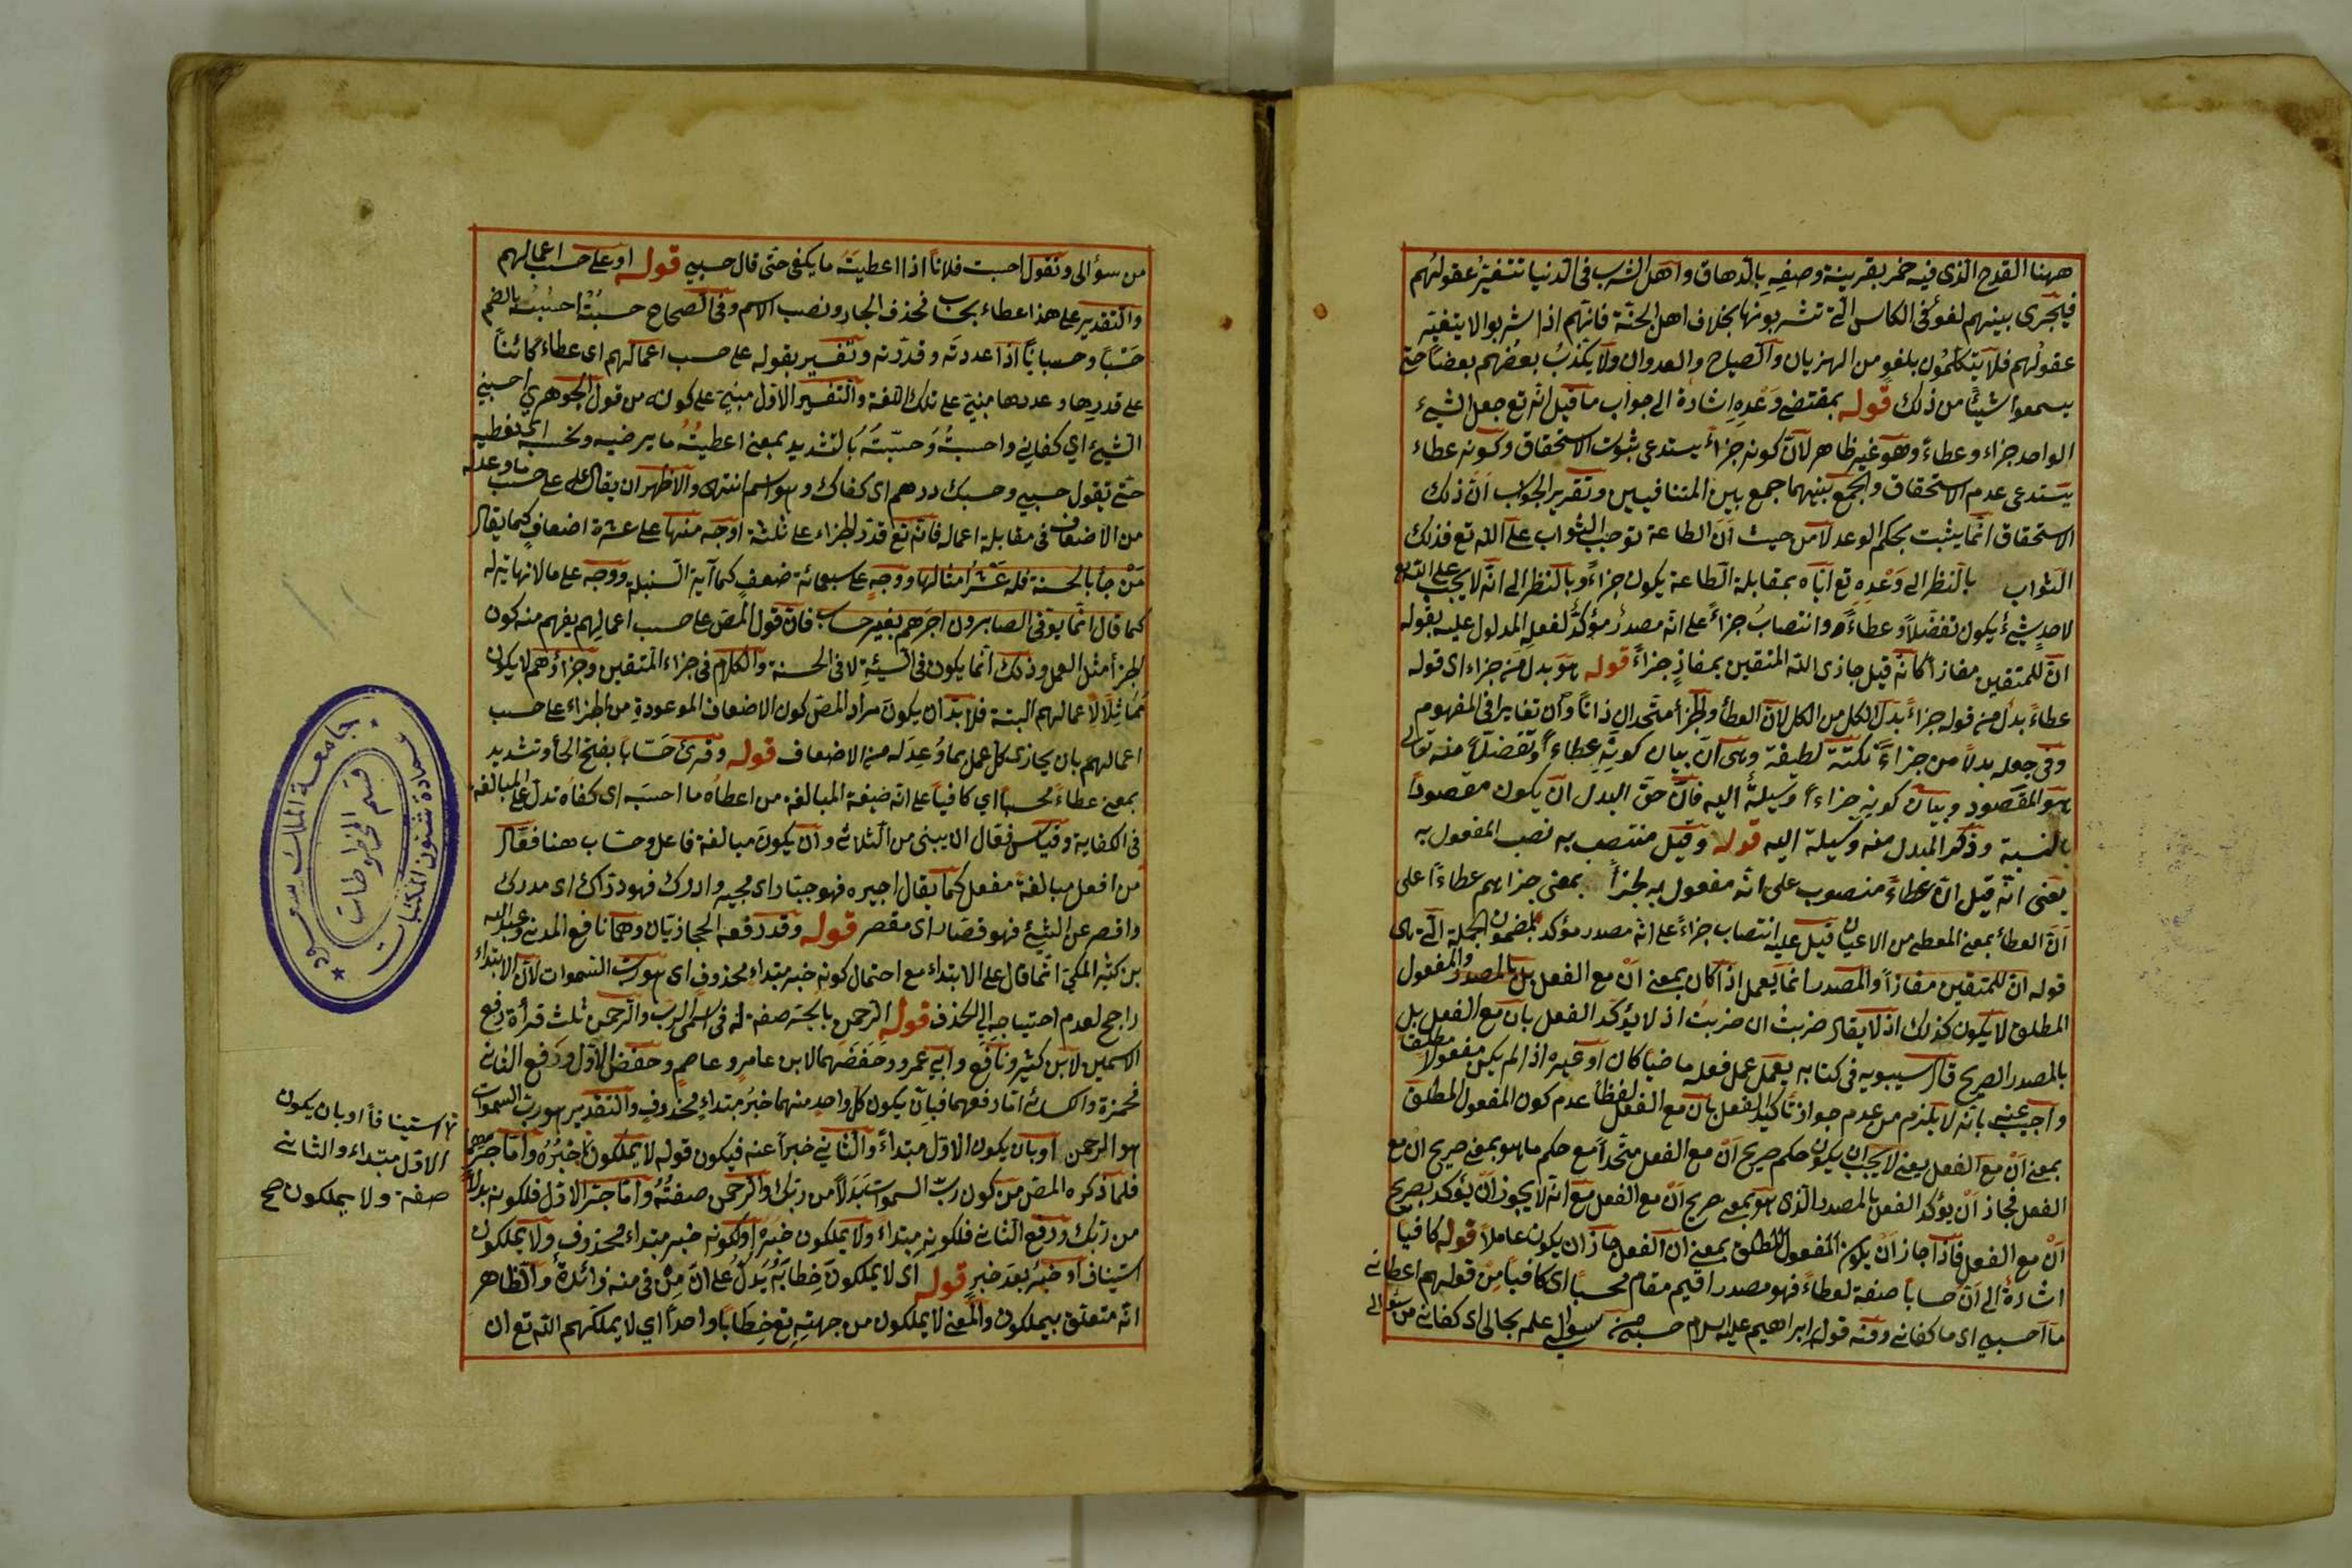 ههنا القدح الذى فيه خمر بقرينة وصفه بالدهاق واهل الشرب فى الدنيا تتغير عقولهم
فيجرى بينهم لغو فى الكاس التى تشربونها بخلاف اهل الجنة فانهم اذا شربوا لا يتغير
عقولهم فلا يتكلمون بلغو من الهزيان والصياح والعدوان ولا يكذب بعضهم بعضا حتى
يسمعوا شيئا من ذلك قوله بمقتضى وعده اشارة الى جواب ما قيل انه تع جعل الشيء
الواحد جزاء وعطاء وهو غير ظاهر لان كونه جزاء يستدعى ثبوت الاستحقاق وكونه عطاء
يستدعى عدم الاستحقاق والجمع بينهما جمع بين المتنافيين وتقرير الجواب ان ذلك
الاستحقاق انما يثبت بحكم الوعد لا من حيث ان الطاعة توجب الثواب على الله تع فذلك
الثواب بالنظر الى وعده تع اياه بمقابلة الطاعة يكون جزاء وبالنظر الى انه لا يجب على الله تع
لاحد شيء يكون تفضلا وعطاء وانتصاب جزاء على انه مصدر مؤكد لفعله المدلول عليه بقوله
ان للمتقين مفازا كانه قيل جازى الله المتقين بمفاز جزاء قوله هو بدل من جزاء اى قوله
عطاء بدل من قوله جزاء بدل الكل من الكل لان العطاء والجزاء متحدان ذاتا وان تغايرا فى المفهوم
وفى جعله بدلا من جزاء نكتة لطيفة وهى ان بيان كونه عطاء وتفضلا منه تعالى
هو المقصود وبيان كونه جزاء وسيلة اليه فان حق البدل ان يكون مقصودا
بالنسبة وذكر المبدل منه وسيلة اليه قوله وقيل منتصب به نصب المفعول به
يعنى انه قيل ان عطاء منصوب على انه مفعول به لجزاء بمعنى جزاهم عطاء على
ان العطاء بمعنى المعطى من الاعيان قيل عليه انتصاب جزاء على انه مصدر مؤكد لمضمون الجملة التى هى
قوله ان للمتقين مفازا والمصدر انما يعمل اذا كان بمعنى ان مع الفعل بل بالمصدر والمفعول
المطلق لا يكون كذلك اذ لا يقال ضربت ان ضربت اذ لا يؤكد الفعل بان مع الفعل بل
بالمصدر الصريح قال سيبويه فى كتابه يعمل عمل فعله ماضيا كان او غيره اذا لم يكن مفعولا مطلقا
واجيب عنه بانه لا يلزم من عدم جواز تاكيد الفعل بان مع الفعل لفظا عدم كون المفعول المطلق
بمعنى ان مع الفعل يعنى لا يجب ان يكون حكم صريح ان مع الفعل متحدا مع حكم ما هو بمعنى صريح ان مع
الفعل فجاز ان يؤكد الفعل بالمصدر الذى هو بمعنى صريح ان مع الفعل مع انه لا يجوز ان يؤكد بصريح
ان مع الفعل فاذا جاز ان يكون المفعول المطلق بمعنى ان الفعل جاز ان يكون عاملا قوله كافيا
اشارة الى ان حسابا صفة لعطاء فهو مصدر اقيم مقام محسبا اى كافيا من قولهم اعطانى
ما احسبني اى ما كفانى ومنه قول ابراهيم عليه السلام حسبى من سؤالى علمه بحالى اى كفانى من سؤالى
من سؤالى وتقول احسبت فلانا اذا اعطيته ما يكفى حتى قال حسبي قوله او على حسب اعمالهم
والتقدير على هذا عطاء بحساب فحذف الجار ونصب الاسم وفى الصحاح حسبته احسبه بالضم
حسبا وحسبانا اذا عددته وقدرته وتفسير بقوله على حسب اعمالهم اى عطاء كائنا
على قدرها وعددها مبنية على تلك اللغة والتفسير الاول مبنية على كونه من قول الجوهري احسبني
الشيء اي كفاني واحسبته وحسّبته بالتشديد بمعنى اعطيته ما يرضيه ونحسبه اى نعطيه
حتى يقول حسبي وحسبك درهم اى كفاك وهو اسم انتهى والاظهر ان يقال على حسب ما وعد له
من الاضعاف فى مقابلة اعماله فانه تع قدر الجزاء على ثلثة اوجه منها على عشرة اضعاف كما يقال
من جاء بالحسنة فله عشر امثالها ووجه على سبعمائة ضعف كما آية السنبلة ووجه على ما لا نهاية له
كما قال انما يوفى الصابرون اجرهم بغير حساب فان قول المص على حسب اعمالهم يفهم منه كون
الجزاء مثل العمل وذلك انما يكون فى السيئة لا فى الحسنة والكلام فى جزاء المتقين وجزاؤهم لا يكون
مماثلا لاعمالهم البتة فلا بد ان يكون مراد المص كون الاضعاف الموعودة من الجزاء على حسب
اعمالهم بان يجازى كل عمل بما وعد له من الاضعاف قوله وقرئ حسّابا بفتح الحاء وتشديد
بمعنى عطاء محسبا اي كافيا على انه صيغة المبالغة من اعطاه ما احسبه اى كفاه تدل على المبالغة
فى الكفاية وقياس فعّال الا يبنى من الثلاثى وان يكون مبالغة فاعل وحساب هنا فعّال
من افعل مبالغة مفعل كما يقال اجبره فهو جبّار اى مجبر وادرك فهو درّاك اى مدرك
واقصر عن الشيء فهو قصّار اى مقصر قوله وقد رفعه الحجازيان وهما نافع المدنى وعبد الله
بن كثير المكى انما قال على الابتداء مع احتمال كونه خبر مبتداء محذوف اى هو رب السموات لان الابتداء
راجح لعدم احتياجه الى الحذف قوله الرحمن بالجر صفة له فى اسمى الرب والرحمن ثلث قرأة رفع
الاسمين لابن كثير ونافع وابي عمرو وخفضهما لابن عامر وعاصم وخفض الاول ورفع الثانى
لحمزة والكسائى اما رفعهما فبان يكون كل واحد منهما خبر مبتداء محذوف والتقدير هو رب السموات
هو الرحمن او بان يكون الاول مبتداء والثاني خبرا عنه فيكون قوله لا يملكون خبره واما جرهما
فلما ذكره المص من كون رب السموات بدلا من ربك والرحمن صفته واما جر الاول فلكونه بدلا
من ربك ورفع الثانى فلكونه مبتداء ولا يملكون خبره او لكونه خبر مبتداء محذوف ولا يملكون
استيناف او خبر بعد خبر قوله اى لا يملكون خطابه يدل على ان من فى منه زائدة والظاهر
انه متعلق بيملكون والمعنى لا يملكون من جهته تع خطابا واحدا اي لا يملكهم الله تع ان
استينافا او بان يكون
الاول مبتداء والثانى
صفة ولا يملكون صح
جامعة الملك سعود
عمادة شئون المكتبات
قسم المخطوطات